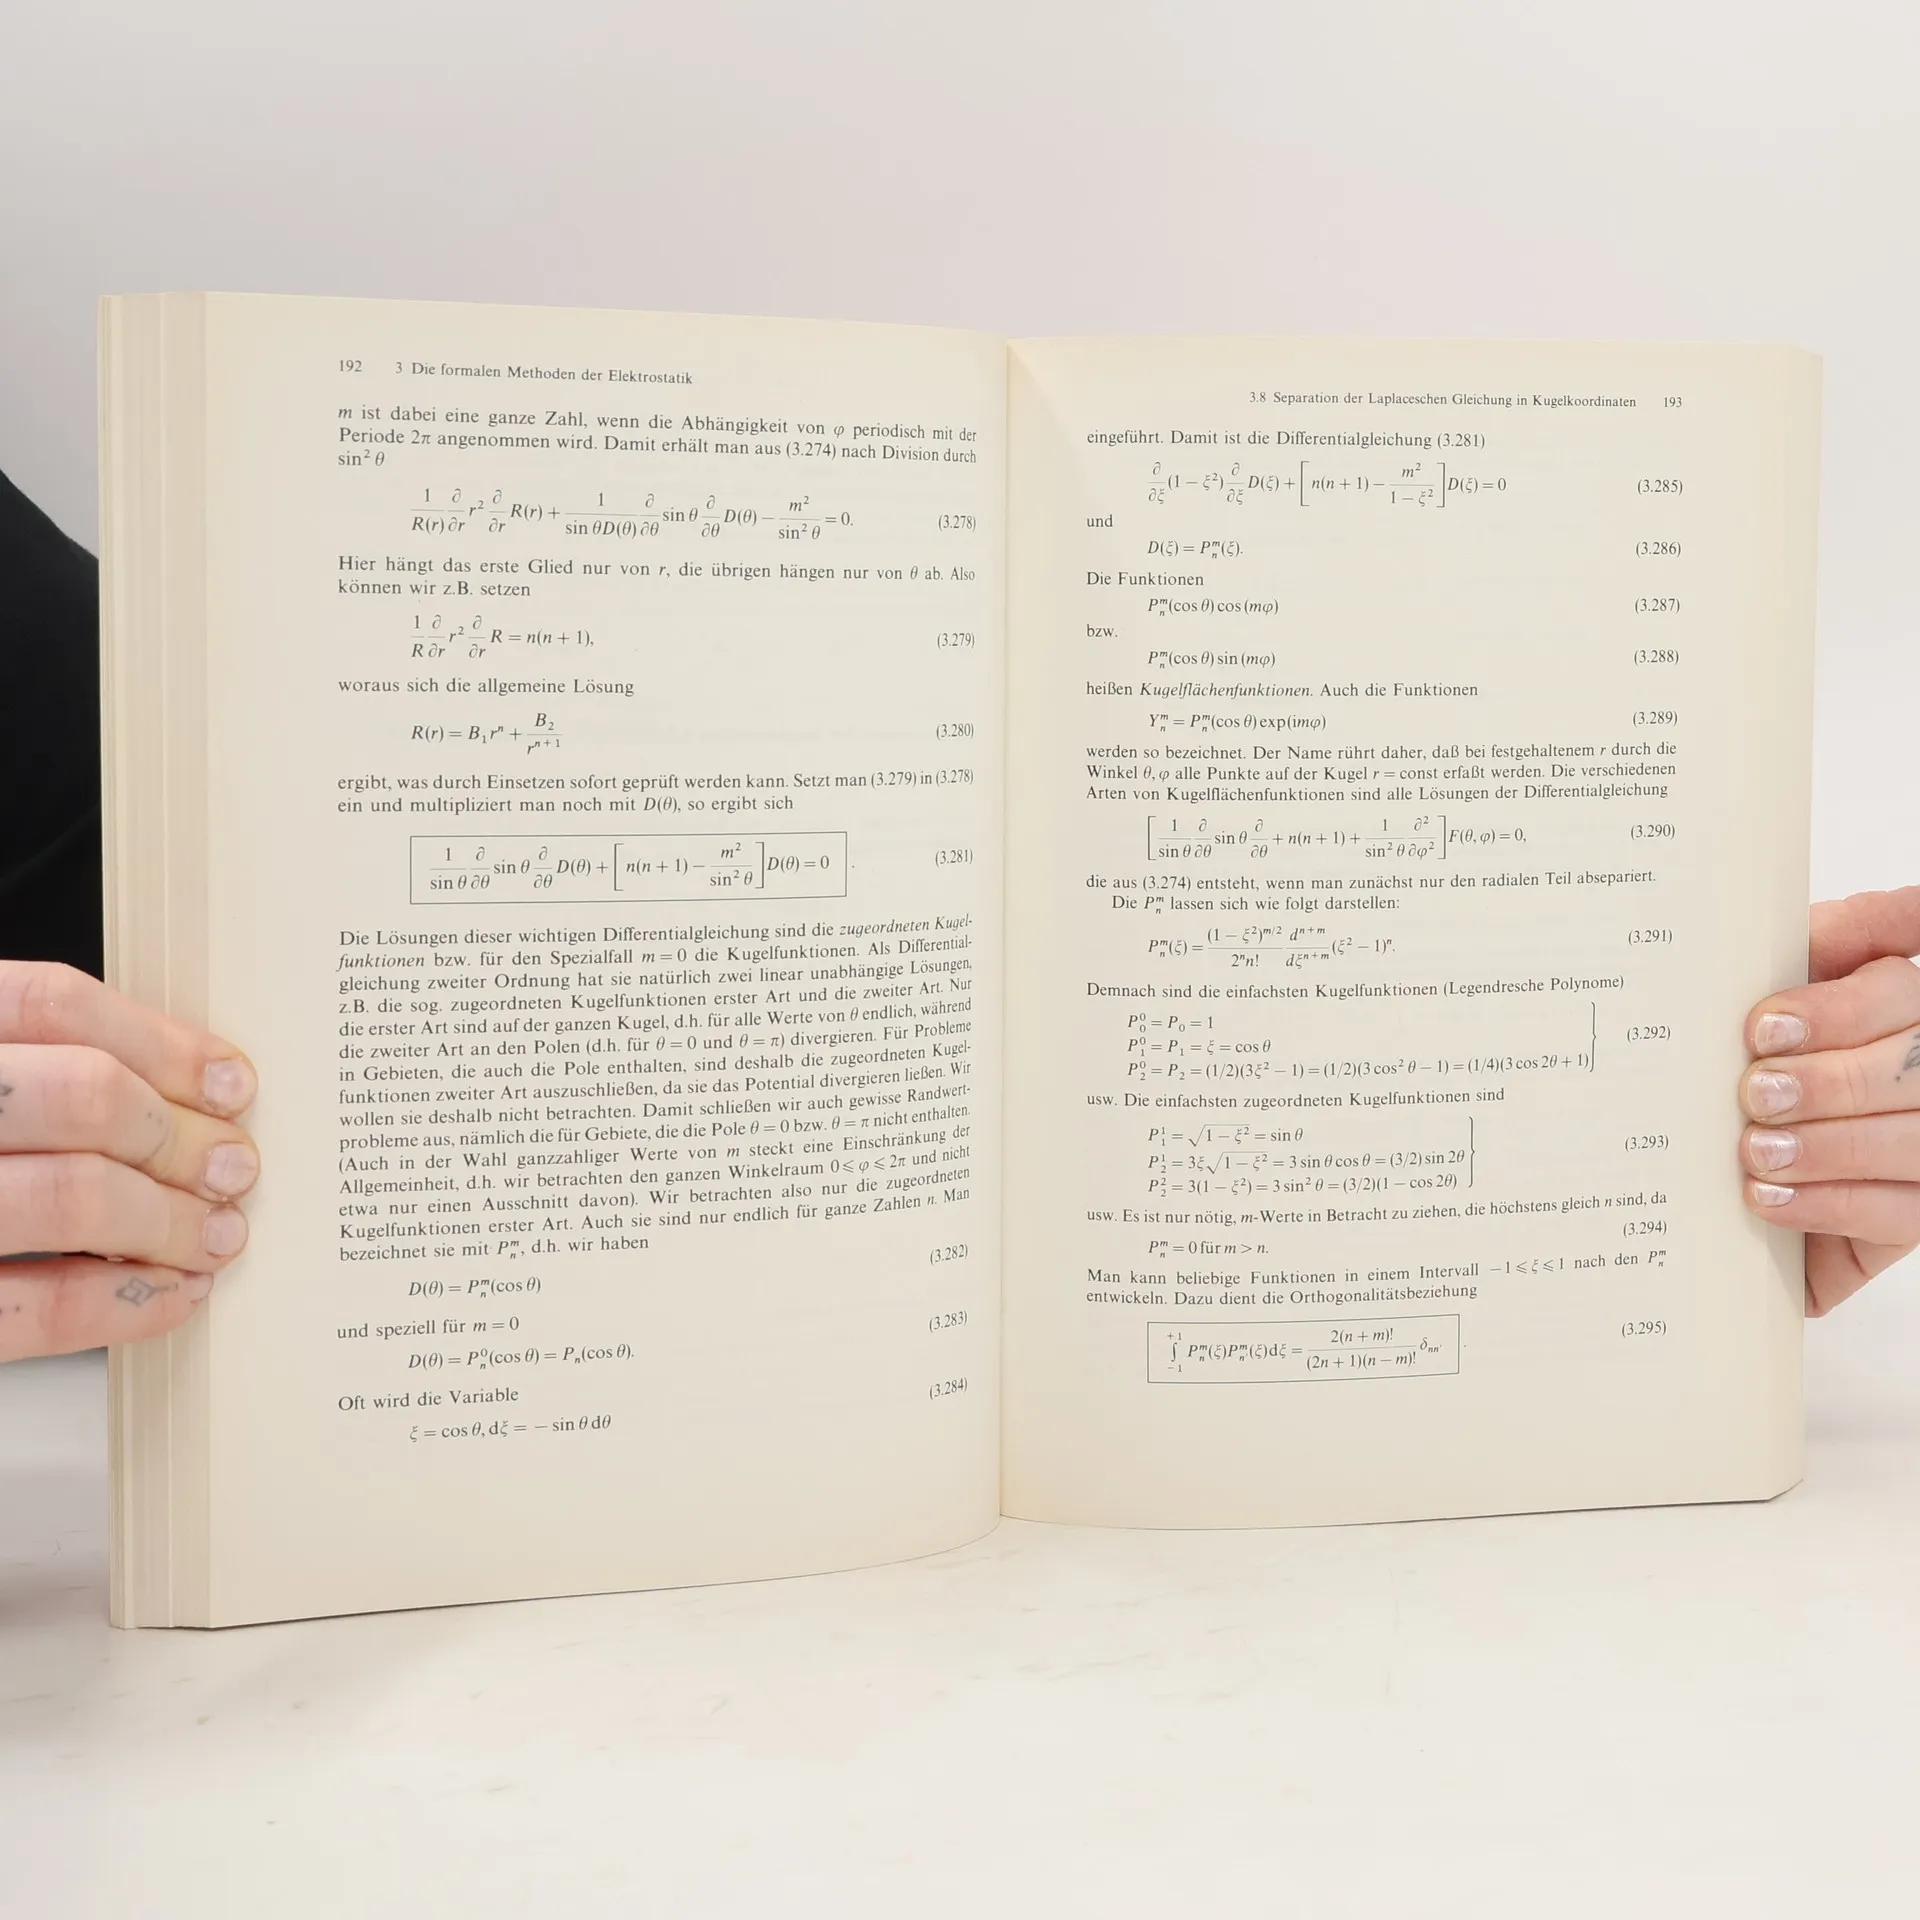 192 3 Die formalen Methoden der Elektrostatik
m ist dabei eine ganze Zahl, wenn die Abhängigkeit von φ periodisch mit der
Periode 2π angenommen wird. Damit erhält man aus (3.274) nach Division durch
sin² θ
1/R(r) ∂/∂r r² ∂/∂r R(r) + 1/(sin θD(θ)) ∂/∂θ sin θ ∂/∂θ D(θ) − m²/sin² θ = 0. (3.278)
Hier hängt das erste Glied nur von r, die übrigen hängen nur von θ ab. Also
können wir z.B. setzen
1/R ∂/∂r r² ∂/∂r R = n(n + 1), (3.279)
woraus sich die allgemeine Lösung
R(r) = B₁rⁿ + B₂/rⁿ⁺¹ (3.280)
ergibt, was durch Einsetzen sofort geprüft werden kann. Setzt man (3.279) in (3.278)
ein und multipliziert man noch mit D(θ), so ergibt sich
1/sin θ ∂/∂θ sin θ ∂/∂θ D(θ) + [n(n + 1) − m²/sin² θ] D(θ) = 0. (3.281)
Die Lösungen dieser wichtigen Differentialgleichung sind die zugeordneten Kugel-
funktionen bzw. für den Spezialfall m = 0 die Kugelfunktionen. Als Differential-
gleichung zweiter Ordnung hat sie natürlich zwei linear unabhängige Lösungen,
z.B. die sog. zugeordneten Kugelfunktionen erster Art und die zweiter Art. Nur
die erster Art sind auf der ganzen Kugel, d.h. für alle Werte von θ endlich, während
die zweiter Art an den Polen (d.h. für θ = 0 und θ = π) divergieren. Für Probleme
in Gebieten, die auch die Pole enthalten, sind deshalb die zugeordneten Kugel-
funktionen zweiter Art auszuschließen, da sie das Potential divergieren ließen. Wir
wollen sie deshalb nicht betrachten. Damit schließen wir auch gewisse Randwert-
probleme aus, nämlich die für Gebiete, die die Pole θ = 0 bzw. θ = π nicht enthalten.
(Auch in der Wahl ganzzahliger Werte von m steckt eine Einschränkung der
Allgemeinheit, d.h. wir betrachten den ganzen Winkelraum 0 ⩽ φ ⩽ 2π und nicht
etwa nur einen Ausschnitt davon). Wir betrachten also nur die zugeordneten
Kugelfunktionen erster Art. Auch sie sind nur endlich für ganze Zahlen n. Man
bezeichnet sie mit Pₙᵐ, d.h. wir haben
D(θ) = Pₙᵐ(cos θ) (3.282)
und speziell für m = 0
D(θ) = Pₙ⁰(cos θ) = Pₙ(cos θ). (3.283)
Oft wird die Variable
ξ = cos θ, dξ = − sin θ dθ (3.284)
3.8 Separation der Laplaceschen Gleichung in Kugelkoordinaten 193
eingeführt. Damit ist die Differentialgleichung (3.281)
∂/∂ξ (1 − ξ²) ∂/∂ξ D(ξ) + [n(n + 1) − m²/(1 − ξ²)] D(ξ) = 0 (3.285)
und
D(ξ) = Pₙᵐ(ξ). (3.286)
Die Funktionen
Pₙᵐ(cos θ) cos (mφ) (3.287)
bzw.
Pₙᵐ(cos θ) sin (mφ) (3.288)
heißen Kugelflächenfunktionen. Auch die Funktionen
Yₙᵐ = Pₙᵐ(cos θ) exp(imφ) (3.289)
werden so bezeichnet. Der Name rührt daher, daß bei festgehaltenem r durch die
Winkel θ, φ alle Punkte auf der Kugel r = const erfaßt werden. Die verschiedenen
Arten von Kugelflächenfunktionen sind alle Lösungen der Differentialgleichung
[1/sin θ ∂/∂θ sin θ ∂/∂θ + n(n + 1) + 1/sin² θ ∂²/∂φ²] F(θ, φ) = 0, (3.290)
die aus (3.274) entsteht, wenn man zunächst nur den radialen Teil absepariert.
Die Pₙᵐ lassen sich wie folgt darstellen:
Pₙᵐ(ξ) = (1 − ξ²)^(m/2)/(2ⁿn!) dⁿ⁺ᵐ/dξⁿ⁺ᵐ (ξ² − 1)ⁿ. (3.291)
Demnach sind die einfachsten Kugelfunktionen (Legendresche Polynome)
P₀⁰ = P₀ = 1
P₁⁰ = P₁ = ξ = cos θ (3.292)
P₂⁰ = P₂ = (1/2)(3ξ² − 1) = (1/2)(3 cos² θ − 1) = (1/4)(3 cos 2θ + 1)
usw. Die einfachsten zugeordneten Kugelfunktionen sind
P₁¹ = √(1 − ξ²) = sin θ
P₂¹ = 3ξ√(1 − ξ²) = 3 sin θ cos θ = (3/2) sin 2θ (3.293)
P₂² = 3(1 − ξ²) = 3 sin² θ = (3/2)(1 − cos 2θ)
usw. Es ist nur nötig, m-Werte in Betracht zu ziehen, die höchstens gleich n sind, da
Pₙᵐ = 0 für m > n. (3.294)
Man kann beliebige Funktionen in einem Intervall −1 ⩽ ξ ⩽ 1 nach den Pₙᵐ
entwickeln. Dazu dient die Orthogonalitätsbeziehung
∫₋₁⁺¹ Pₙᵐ(ξ)Pₙ'ᵐ(ξ)dξ = 2(n + m)!/((2n + 1)(n − m)!) δₙₙ'. (3.295)